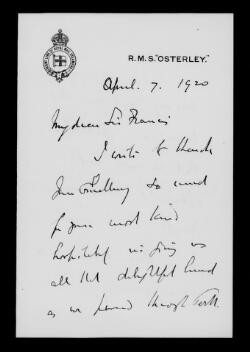 R.M.S. "OSTERLEY."
April. 7. 1920
My dear Sir Francis
I write to thank
you &
so much
for your most kind
hospitality in giving us
all that delightful
as we passed through Perth.